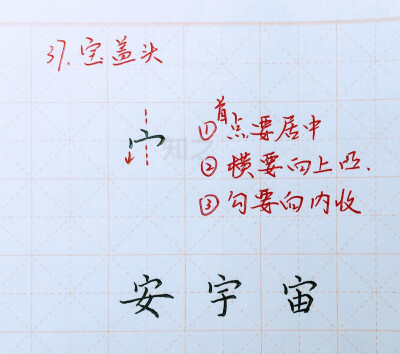 37.宝盖头
宀
①首点要居中
②横要向上凸.
③勾要向内收
安 宇 宙